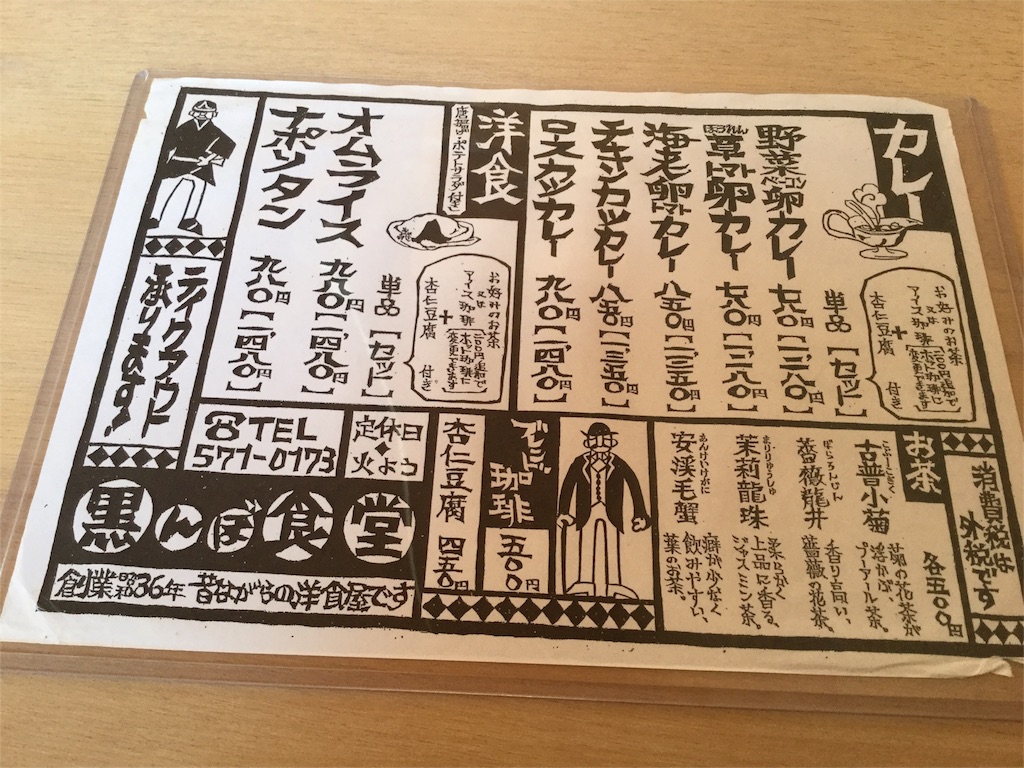 カレー
お好みのお茶
又は
アイス珈琲 [一〇〇円追加で
ホット珈琲に
変更できます]
+
杏仁豆腐 付き
単品【セット】
野菜ベーコン卵カレー 七八〇円【一二八〇】
ほうれん草トマト卵カレー 七八〇円【一二八〇】
海老卵トマトカレー 八五〇円【一三五〇】
チキンカツカレー 八五〇円【一三五〇】
ロースカツカレー 九八〇円【一四八〇】
洋食
唐揚げ・ポテトサラダ付き
お好みのお茶
又は
アイス珈琲 [一〇〇円追加で
ホット珈琲に
変更できます]
+
杏仁豆腐 付き
単品【セット】
オムライス 九八〇円【一四八〇】
ナポリタン 九八〇円【一四八〇】
テイクアウト
承ります!
消費税は
外税です
お茶
各五〇〇円
古普小菊
菊の花茶が
浮かぶ、
プーアール茶。
薔薇龍井
香り高い、
薔薇の花茶。
まりりゅうしゅ
茉莉龍珠
柔らかく
上品に香る、
ジャスミン茶。
あんけいけがに
安渓毛蟹
癖が少なく
飲みやすい、
葉のお茶。
珈琲 五〇〇円
杏仁豆腐 四五〇円
定休日
火よう
☎TEL
571-0173
黒んぼ食堂
創業昭和36年 昔ながらの洋食屋です